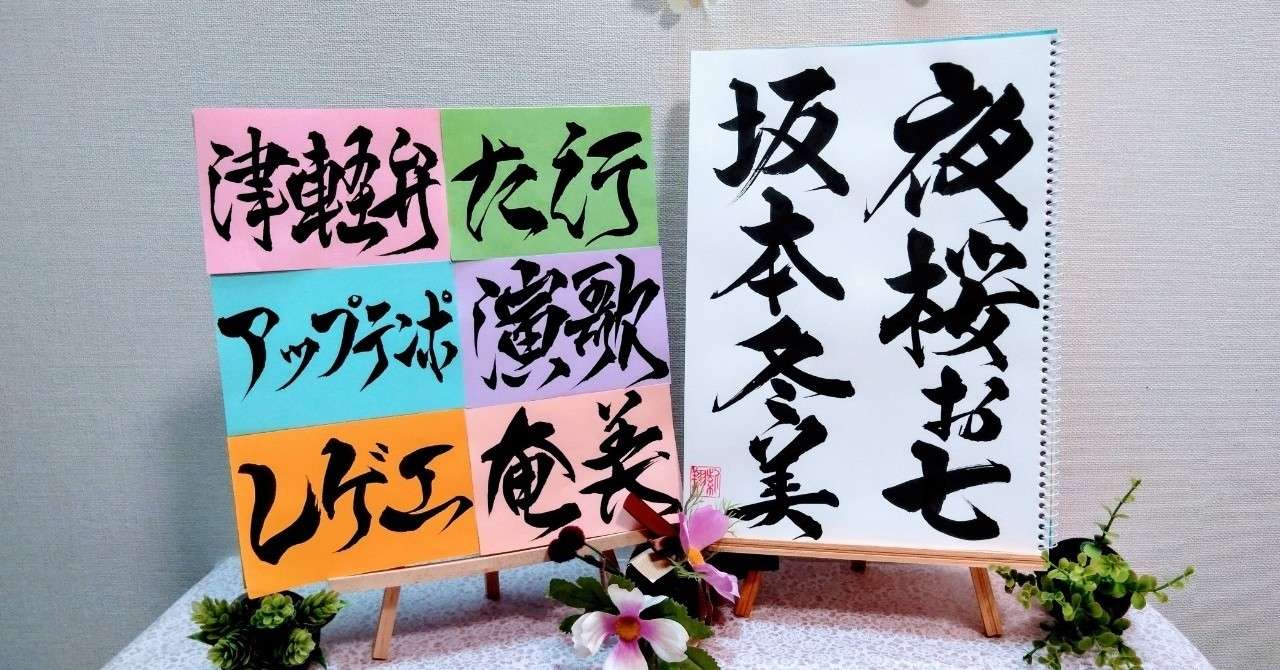 津軽弁
た行
アップテンポ
演歌
レゲエ
奄美
夜桜お七
坂本冬美